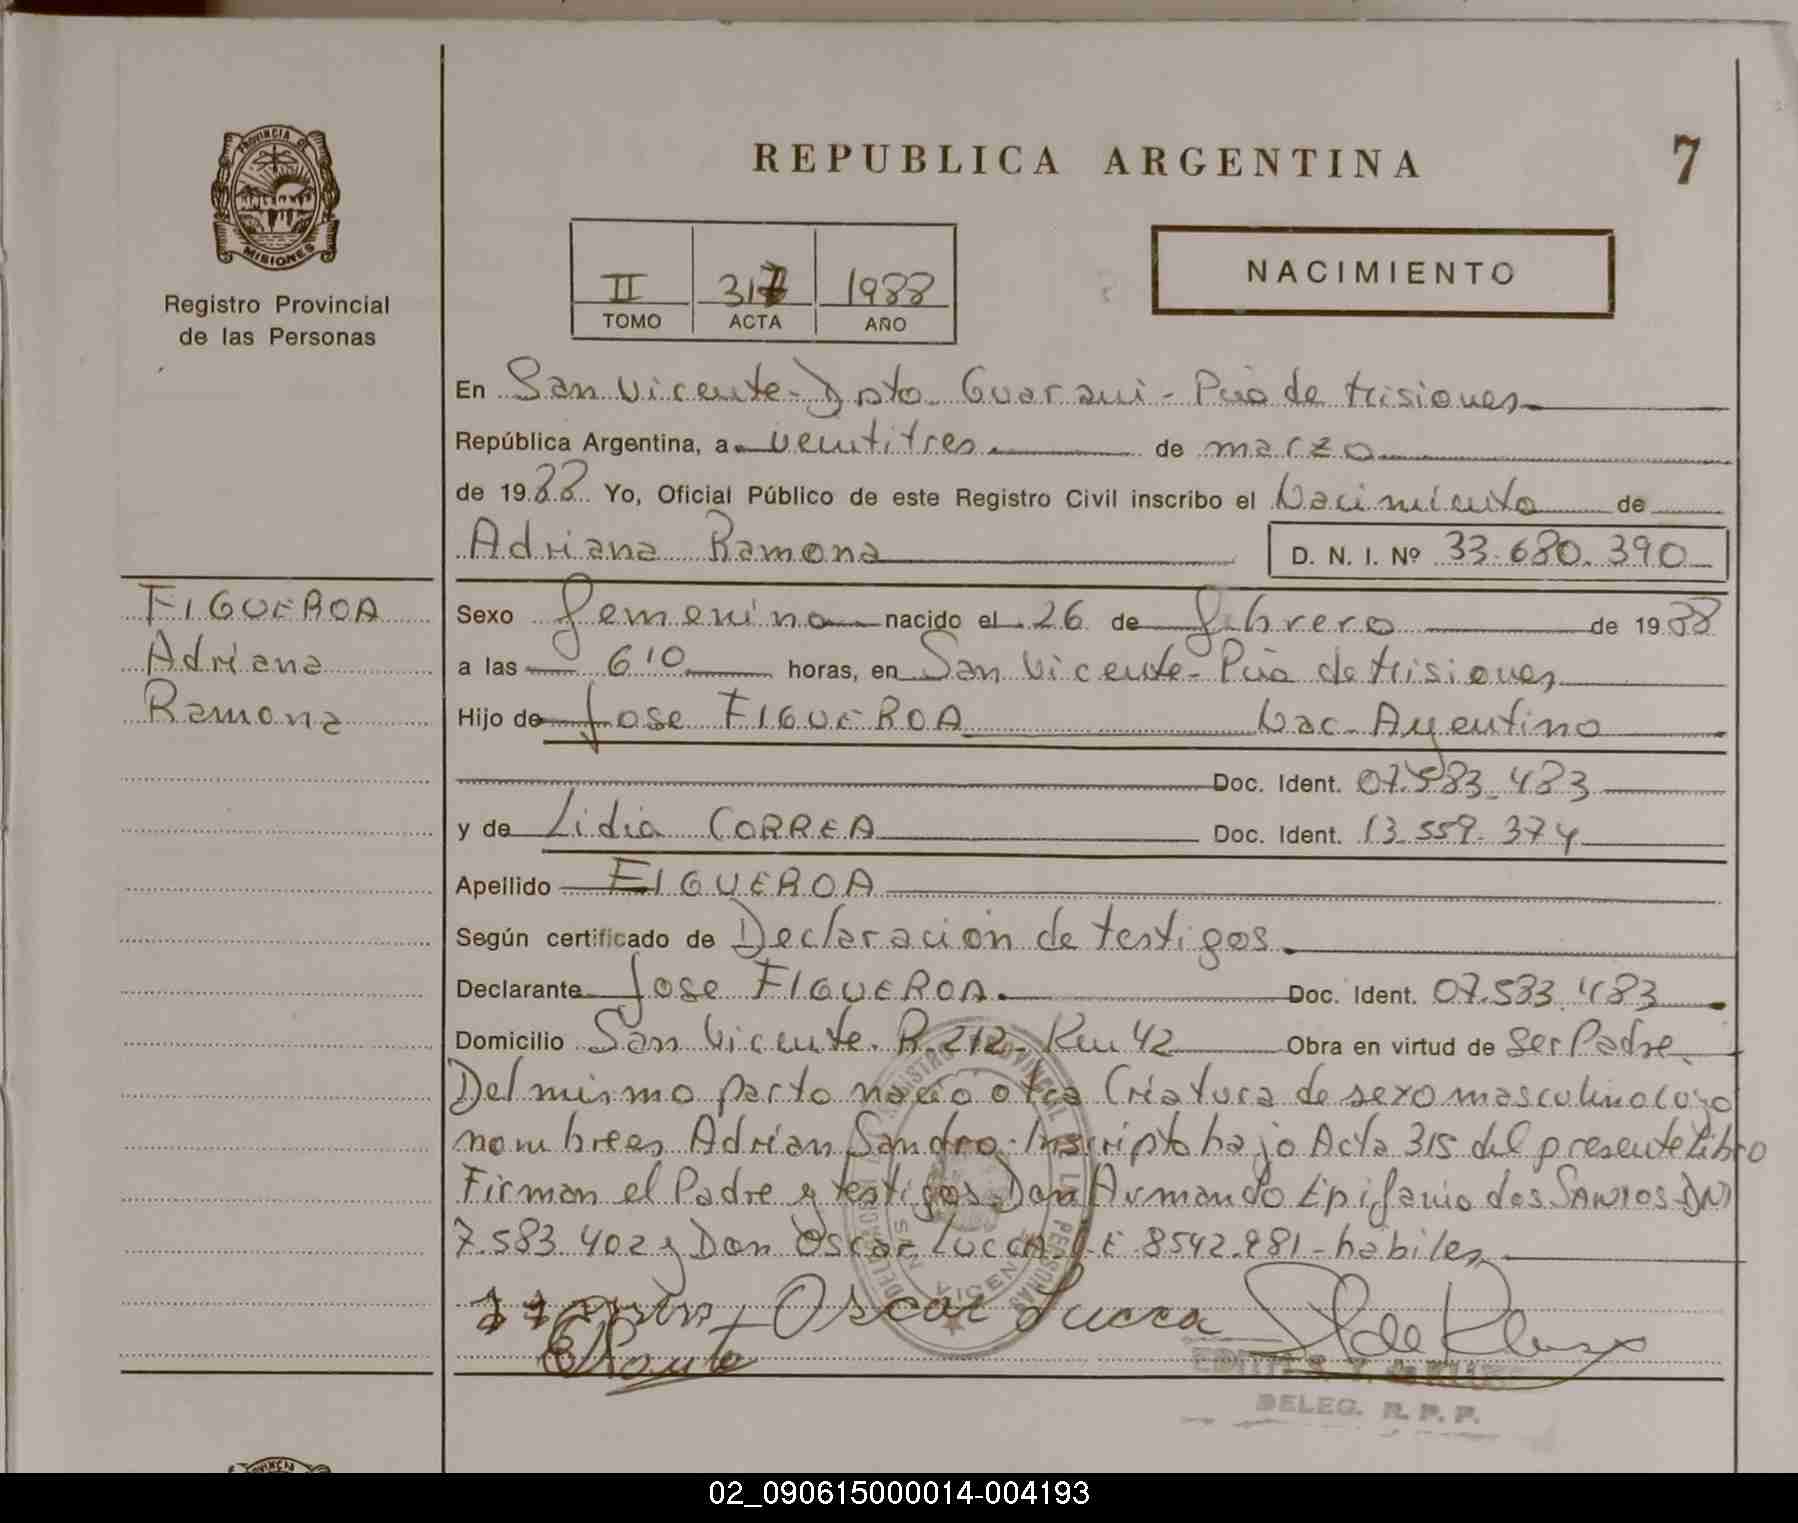 PROVINCIA DE
MISIONES
Registro Provincial
de las Personas
REPUBLICA ARGENTINA
7
II 317 1988
TOMO ACTA AÑO
NACIMIENTO
En San Vicente - Dpto. Guarani - Pcia de Misiones
República Argentina, a veintitres de marzo
de 1988 Yo, Oficial Público de este Registro Civil inscribo el Nacimiento de
Adriana Ramona D. N. I. Nº 33.680.390
FIGUEROA
Adriana
Ramona
Sexo femenino nacido el 26 de febrero de 1988
a las 6'10 horas, en San Vicente - Pcia de Misiones
Hijo de Jose FIGUEROA Nac. Argentino
Doc. Ident. 07.583.483
y de Lidia CORREA Doc. Ident. 13.559.374
Apellido FIGUEROA
Según certificado de Declaración de testigos
Declarante Jose FIGUEROA Doc. Ident. 07.583.483
Domicilio San Vicente. R. 212. Km 42 Obra en virtud de ser Padre
Del mismo parto nacio otra Criatura de sexo masculino cuyo
nombre es Adrian Sandro. Inscripto bajo Acta 315 del presente Libro
Firman el Padre y testigos Don Armando Epifanio dos SANTOS DNI
7.583.402 y Don Oscar LUCCA 8542.981 - habiles
Oscar Lucca
DELEG. R. P. P.
02_090615000014-004193